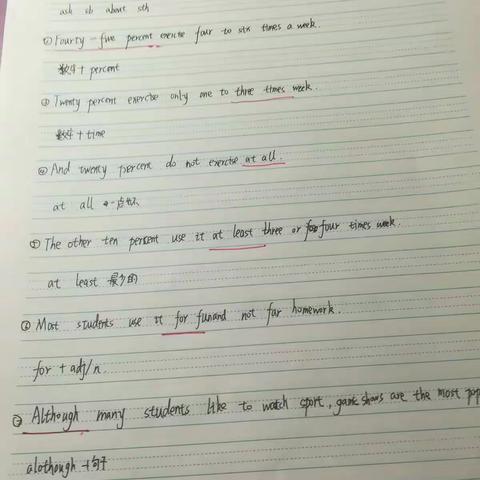 ask sb about sth
① Fourty-five percent exercise four to six times a week.
数字+ percent
② Twenty percent exercise only one to three times week.
数字+time
④ And twenty percent do not exercise at all.
at all 一点也不
⑤ The other ten percent use it at least three or four times week.
at least 最少的
⑥ Most students use it for funand not far homework.
for + adj/n.
Although many students like to watch sport, game shows are the most pop
alothough +句子